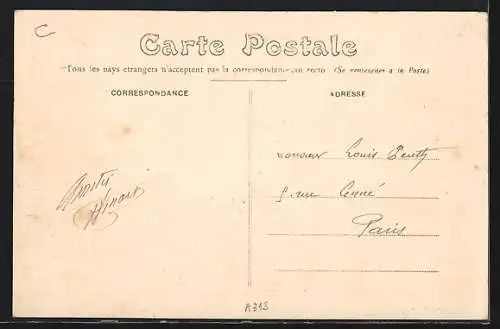 C
Carte Postale
Tous les pays étrangers n'acceptent pas la correspondance au recto (Se renseigner à la Poste)
CORRESPONDANCE
ADRESSE
Monsieur Louis
5 rue
Paris
A313